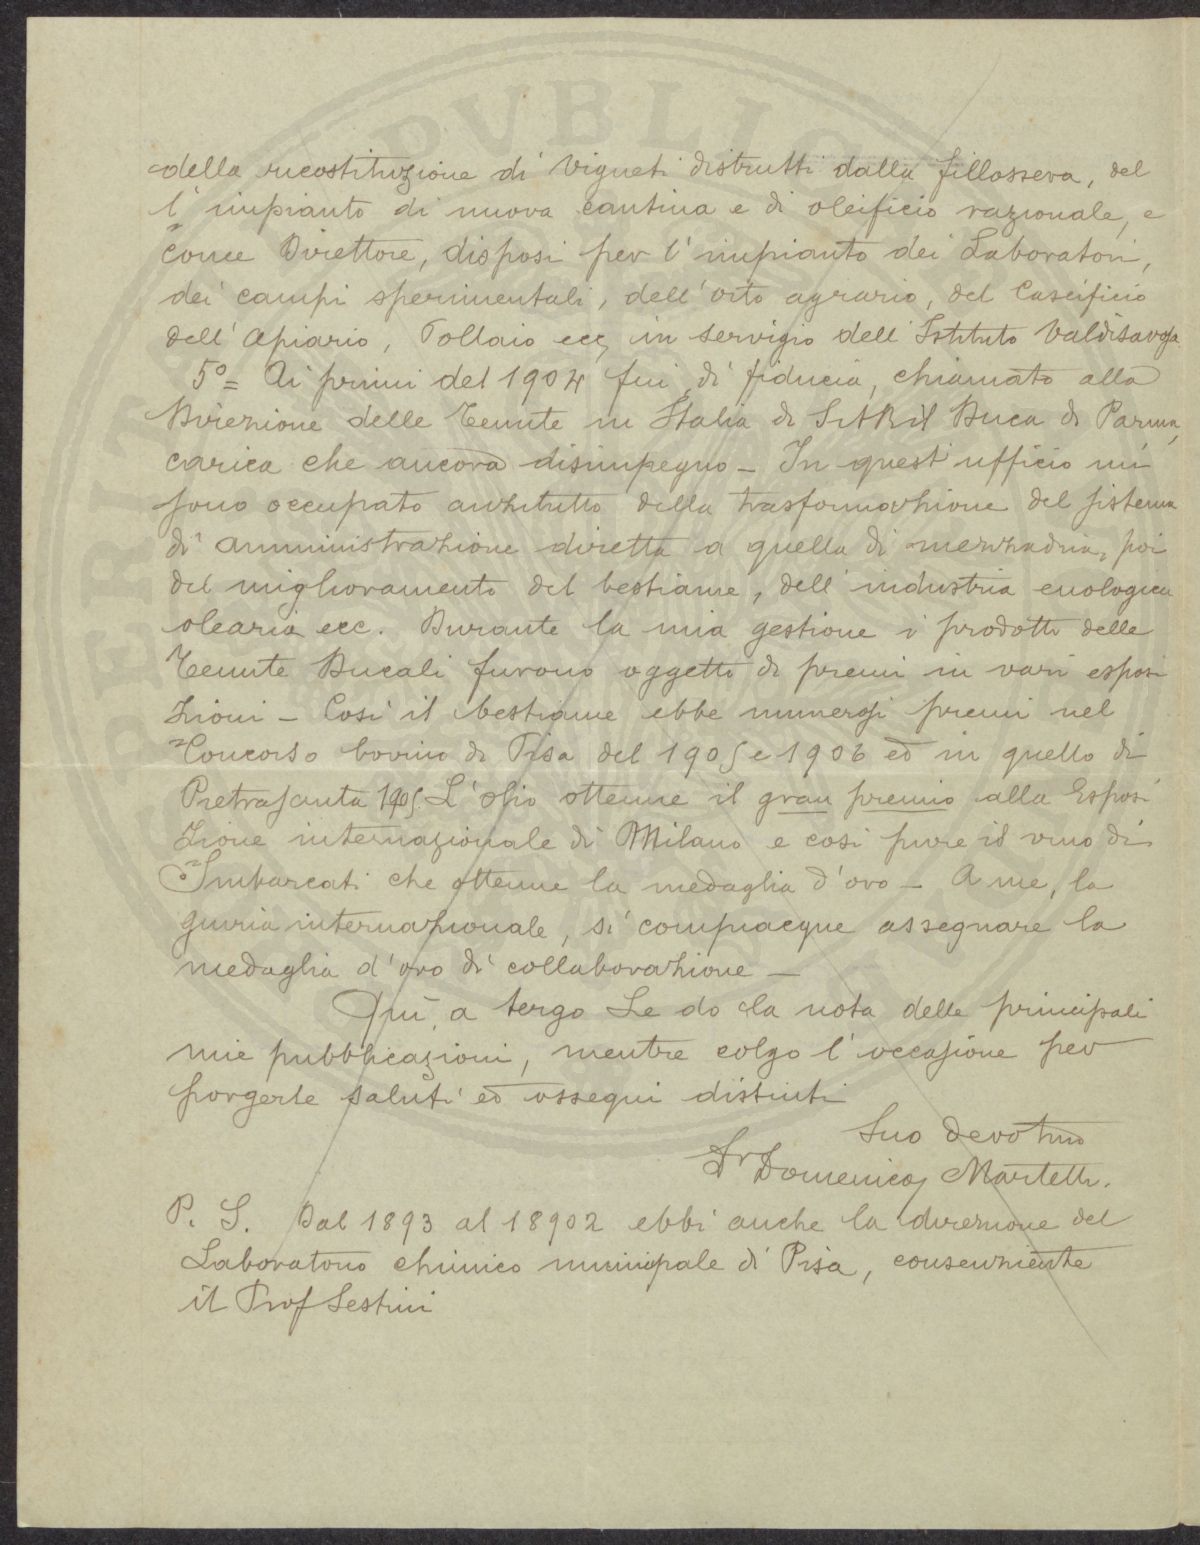 della ricostituzione di vigneti distrutti dalla fillossera, del
l'impianto di nuova cantina e di oleificio razionale, e
come Direttore, disposi per l'impianto dei Laboratori,
dei campi sperimentali, dell'orto agrario, del Caseificio
dell'Apiario, Pollaio ecc, in servizio dell'Istituto Valdisavoja
5º= Ai primi del 1904 fui, di fiducia, chiamato alla
Direzione delle Tenute in Italia di S.A.R. il Duca di Parma,
carica che ancora disimpegno - In quest'ufficio mi
sono occupato anzitutto della trasformazione del sistema
di amministrazione diretta a quella di mezzadria, poi
del miglioramento del bestiame, dell'industria enologica
olearia ecc. Durante la mia gestione i prodotti delle
Tenute Ducali furono oggetto di premi in vari esposi
zioni - Così il bestiame ebbe numerosi premi nel
Concorso bovino di Pisa del 1905 e 1906 ed in quello di
Pietrasanta 1905 L'olio ottenne il gran premio alla Esposi
zione internazionale di Milano e così pure il vino di
Imbarcati che ottenne la medaglia d'oro - A me, la
giuria internazionale, si compiacque assegnare la
medaglia d'oro di collaborazione -
Qui, a tergo Le do la nota delle principali
mie pubblicazioni, mentre colgo l'occasione per
porgerle saluti ed ossequi distinti
Suo devotmo
Dr Domenico Martelli.
P. S. Dal 1893 al 18902 ebbi anche la direzione del
Laboratorio chimico municipale di Pisa, consenziente
il Prof Sestini